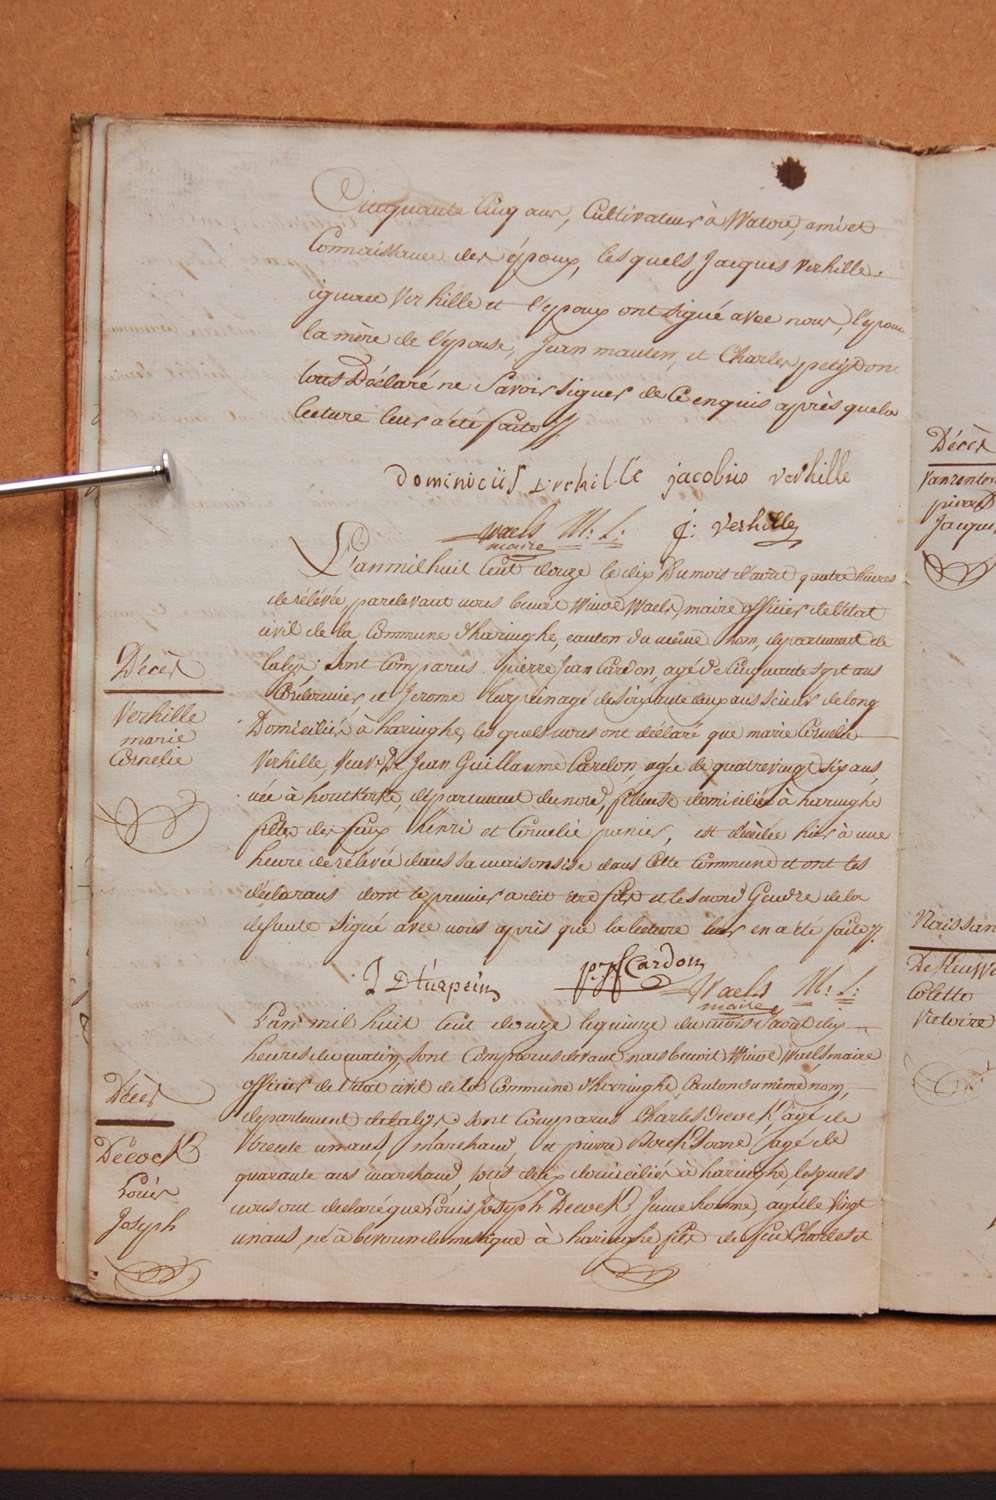 Cinquante Cinq ans, Cultivateur à Watou, ami et
Connaissance des époux, lesquels Jacques Verhille
ignace Verhille et l'epoux ont signé avec nous, l'epouse
la mère de l'épouse, Jean et Charles
tous Déclaré ne Savoir signer de Ce enquis après que la
lecture leur a été faite //.
Dominicus Verhille jacobus verhille
Waels M: L: j: Verhille
maire
L'an mil huit Cent douze le dix Du mois d'août quatre heures
de rélévée pardevant nous benoit Winoc Waels, maire officier de l'état
civil de la Commune d'haringhe, canton du même nom, département de
la lijs: sont Comparus pierre Jean Cardon, agé de Cinquante sept ans
et Jerome agé de soixante deux ans scieur de long
Domiciliés à haringhe, les quels nous ont déclaré que marie Cornelie
Verhille, Veuve De Jean Guillaume Cardon agée de quatre vingt six ans,
née à houtkerke, département du nord, domiciliée à haringhe
fille des feux henri et Cornelie panier, est décédée hier à une
heure de rélévée dans sa maison sise dans Cette Commune et ont les
déclarans dont le premier a dit être fils et le second Gendre de la
defunte signé avec nous après que la lecture leur en a été faite //.
J D turpein p. j. Cardon Waels M: L:
maire
L'an mil huit Cent douze le quinze du mois d'août dix
heures du matin, sont Comparus devant nous benoit Winoc Waels maire
officier de l'état civil de la Commune d'haringhe, Canton du même nom,
département de la lijs sont Comparus Charles Decock, agé de
trente un ans, marchand, et pierre agé de
quarante ans marchand, tous deux domiciliés à haringhe, lesquels
nous ont declaré que Louis Joseph Decock Jeune homme, agé de Vingt
un ans, né à beveren domestique à haringhe fils de feu Charles et
Décès
Verhille
marie
Cornelie
Décès
Decock
Louis
Joseph
Décès
pierre
Jacques
Naissan
Colette
Victoire